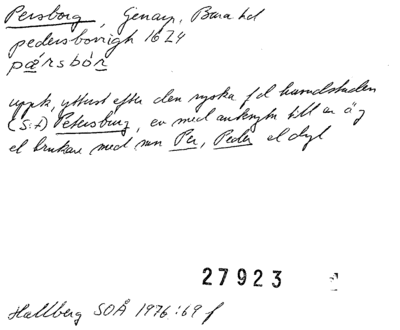 Persborg, Genarp, Bara hd
pedersborrigh 1624
pæ̱rsbóṟ
uppk. ytterst efter den ryska f d huvudstaden
(S:t) Petersburg, ev med anknytn till en äg
el brukare med nmn Per, Peder el dyl
27923
Hallberg SOÅ 1976:69 f